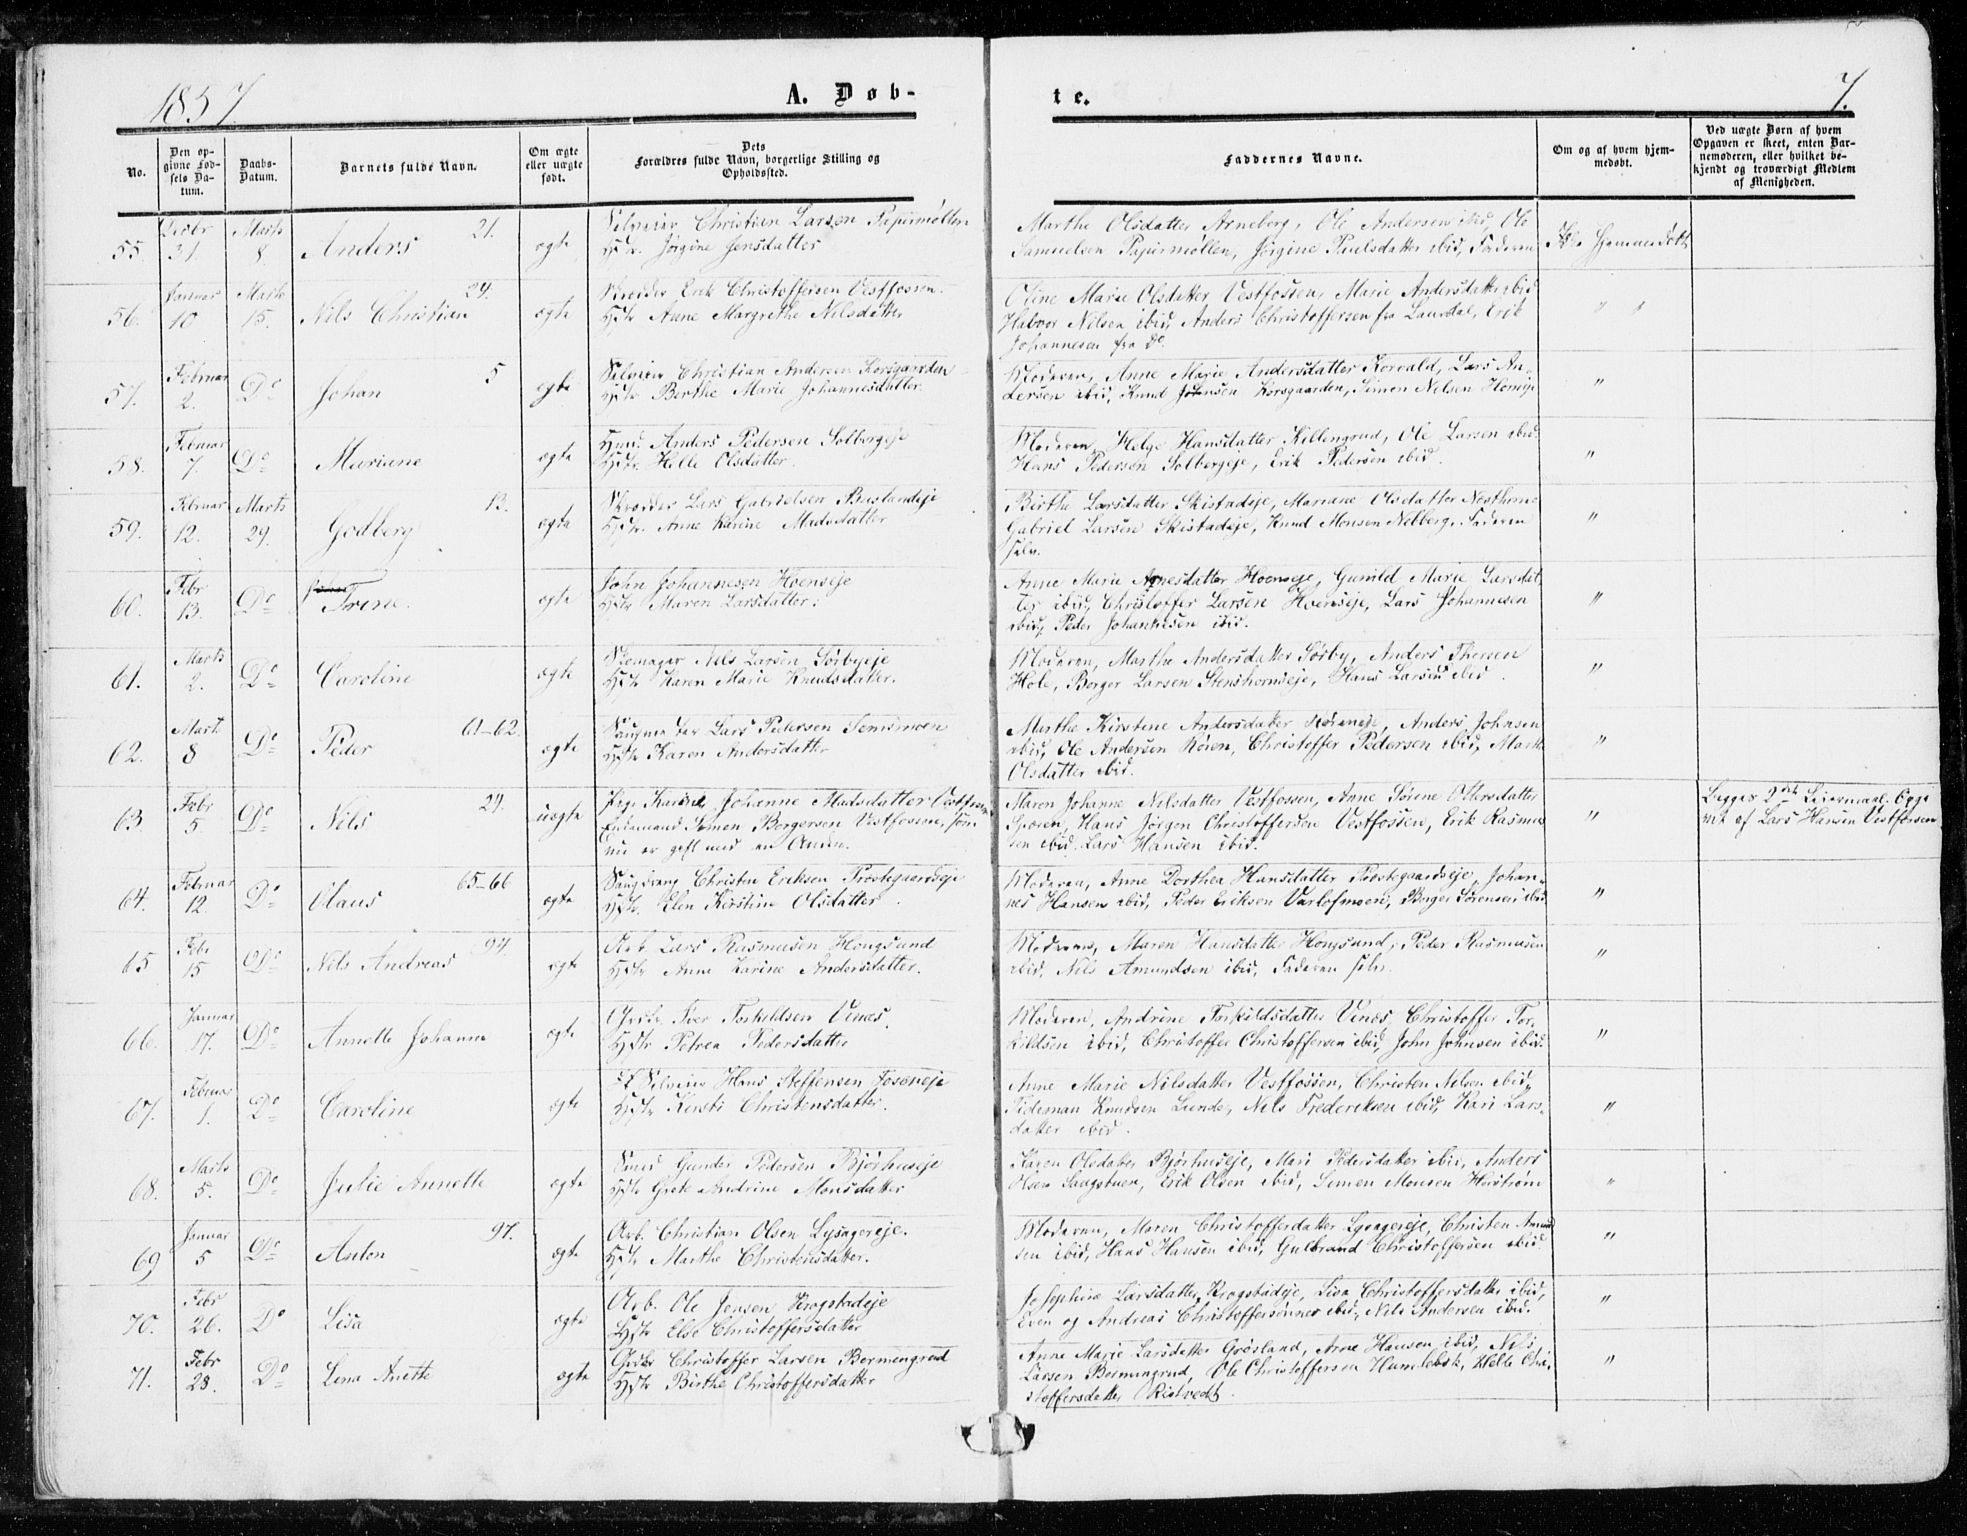 1857.
A. Døb-
te.
7.
No.
Den op-
givne Fød-
sels Da-
tum.
Daabs-
Datum.
Barnets fulde Navn.
Om ægte
eller uægte
født.
Dets
Forældres fulde Navn, borgerlige Stilling og
Opholdssted.
Faddernes Navne.
Om og af hvem hjem-
medøbt.
Ved uægte Børn af hvem
Opgaven er skeet, enten Bar-
nemoderen, eller hvilket be-
kjendt og troværdigt Medlem
af Menigheden.
55. Decbr 31. Marts 8. Anders 21. ægte
Christian Larsen Papirmøllen
Hstr. Jørgine Jensdatter
Marthe Olsdatter Arneberg, Ole Andersen ibid, Ole
Samuelsen Papirmøllen, Jørgine Paulsdatter ibid, Faderen
56. Januar 10 Marts 15. Nils Christian 29. ægte
Skrædder Erik Christoffersen Vestfossen.
Hstr Anne Margrethe Nilsdatter
Oline Marie Olsdatter Vestfossen, Marie Andersdatter ibid
Halvor Nilsen ibid, Anders Christoffersen fra Laurdal, Erik
Johannesen fra Do.
" "
57. Februar 2. Do Johan 5 ægte
Christian Andersen Korsgaarden
Hstr Berthe Marie Johannesdatter.
Moderen, Anne Marie Andersdatter Korvald, Lars An-
dersen ibid, Knud Jensen Korsgaarden, Simen Nilsen
"
58. Februar 7 Do Mariane ægte
Anders Pedersen Solbergeje
Hstr. Helle Olsdatter.
Moderen, Helge Hansdatter Killengrud, Ole Larsen ibid.
Hans Pedersen Solbergeje, Erik Pedersen ibid.
"
59. Februar 12. Marts 29. Godberg 13. ægte
Skrædder Lars Gabrielsen
Hstr. Anne Karine Madsdatter
Birthe Larsdatter Skistadeje, Mariane Olsdatter
Gabriel Larsen Skistadeje, Knud Monsen Nelberg, Faderen
selv.
"
60. Febr 13. Do Trine. ægte
John Johannesen Hoenseje
Hstr Maren Larsdatter.
Anne Marie Arnesdatter Hoenseje, Gunild Marie Larsdat
ter ibid, Christoffer Larsen Hoenseje, Lars Johannesen
ibid, Peder Johannesen ibid.
"
61. Marts 2. Do Caroline ægte
Skomager Nils Larsen Sørbyeje
Hstr Karen Marie Knudsdatter.
Moderen, Marthe Andersdatter Sørby, Anders Thorsen
Hole, Borger Larsen Stenshornseje, Hans Larsen ibid.
"
62. Mart 8 Do Peder 61-62. ægte
Lars Pedersen
Hstr Karen Andersdatter
Marthe Kirstene Andersdatter, Anders Johnsen
ibid, Ole Andersen Røren, Christoffer Pedersen ibid, Marthe
Olsdatter ibid.
"
63. Febr 5. Do Nils 29. uægte
Pige Karine Johanne Madsdatter Vestfossen
Enkemand Simen Borgersen Vestfossen, som
nu er gift med en Anden.
Maren Johanne Nilsdatter Vestfossen, Anne Sørine Ottersdatter
Sporen, Hans Jørgen Christoffersen Vestfossen, Erik Rasmus
sen ibid. Lars Hansen ibid.
"
Begges 2det Leiermaal. Opgi
vet af Lars Hansen Vestfossen
64. Februar 12. Do Olaus 65-66 ægte
Christen Eriksen Prostegaardseje
Hstr. Elen Kirstine Olsdatter.
Moderen, Anne Dorthea Hansdatter Prostegaardseje, Johan-
nes Hansen ibid, Peder Eriksen, Borger Sørensen ibid.
"
65 Febr 15 Do Nils Andreas 94. ægte
Arb Lars Rasmusen Hongsund
Hstr Anne Karine Andersdatter.
Moderen, Maren Hansdatter Hongsund, Peder Rasmusen
ibid, Nils Amundsen ibid, Faderen selv.
"
66. Januar 17. Do Annette Johanne ægte
Iver Torkildsen Vinæs
Hstr Petrea Pedersdatter
Moderen, Andrine Torkildsdatter Vinæs, Christoffer Tor-
kildsen ibid, Christoffer Christoffersen ibid, John Johnsen ibid.
"
67. Februar 1. Do Caroline ægte
Hans Steffensen Foseneje
Hstr Kersti Christensdatter.
Anne Marie Nilsdatter Vestfossen, Christen Nilsen ibid,
Tideman Knudsen Lunde, Nils Frederiksen ibid, Kari Lars-
datter ibid.
"
68. Marts 5. Do Julie Annette ægte
Smed Gunder Pedersen Bjørhuseje
Hstr Grete Andrine Monsdatter
Karen Olsdatter Bjørhuseje, Mari Pedersdatter ibid, Anders
Olsen Saugstuen, Erik Olsen ibid, Simen Monsen
"
69 Januar 5 Do Anton 97. ægte
Arb. Christian Olsen Lysagereje.
Hstr Marthe Christensdatter.
Moderen, Maren Christofferdatter Lysagereje, Christen Amund
sen ibid, Hans Hansen ibid, Gulbrand Christoffersen ibid.
"
70. Febr 26. Do Lisa ægte
Arb. Ole Jensen Krogstadeje
Hstr Else Christoffersdatter
Josephine Larsdatter Krogstadeje, Lisa Christoffersdatter ibid,
Even og Andreas Christoffersønner ibid, Nils Andersen ibid.
"
71. Febr 28. Do Lena Anette ægte
Christoffer Larsen Bermengrud
Hstr Birthe Christoffersdatter
Anne Marie Larsdatter Grøsland, Arne Hansen ibid, Nils
Larsen Bermengrud, Ole Christoffersen Humlebæk, Helle Chri-
stoffersdatter Ristvedt.
"